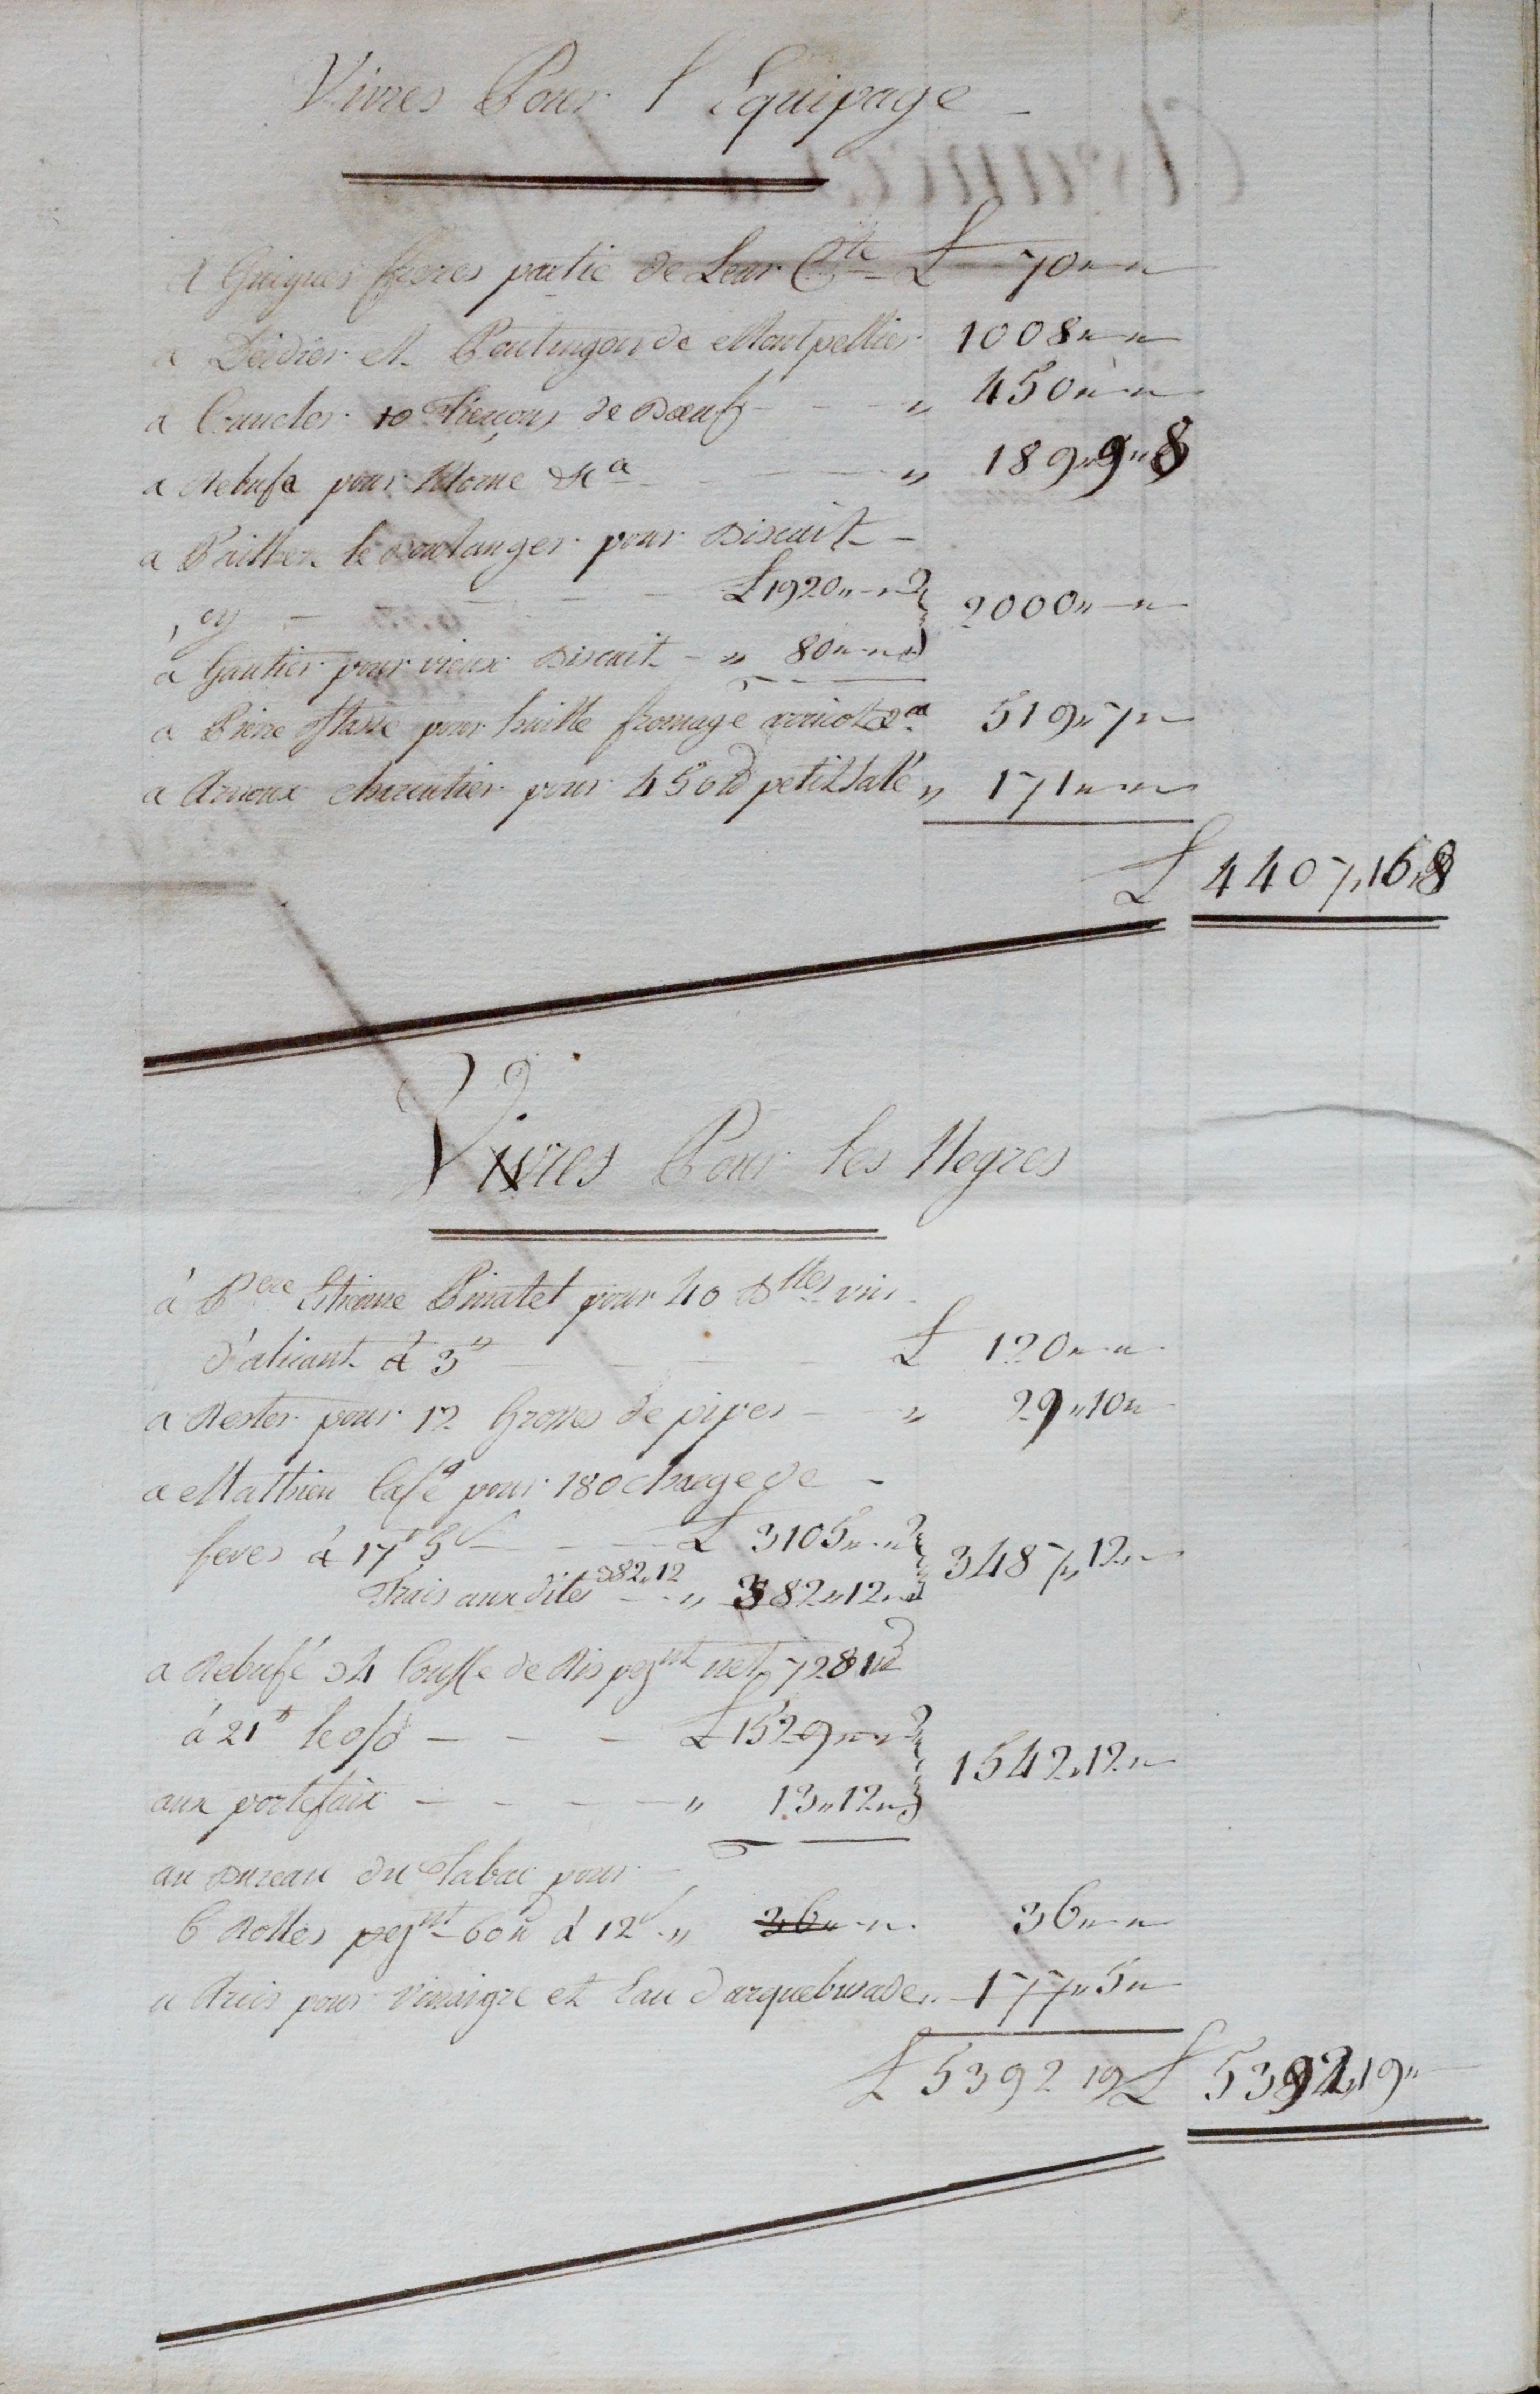 Vivres Pour l'Equipage
a Guigues freres partie de Leur Cte £ 70 " "
a Deidier et de Montpellier 1008 " "
a 10 Tierçons de Bœuf - - " 450 " "
a Rebufé pour Morue &a - - " 189 " 9 " 8
a le Boulanger pour Biscuit -
cy - - - £ 1920 " " 2000 " "
a Gautier pour vieux Biscuit - " 80 " "
a Pierre pour huille fromage aricot &a 519 " 7 "
a Arnoux charcutier pour 450 lb petit Salé " 171 " "
£ 4407 " 16 " 8
Vivres Pour les Negres
à Pre Etienne Pinatel pour 40 Blles vin
d'alicant à 3 # - - £ 120 " "
a Rester pour 12 Grosses de pipes - " 29 " 10 "
a Mathieu pour 180 charge de -
feves à 17 # 5 s - - £ 3105 " " 3487 " 12 "
382 " 12
Frais aux dites - " 382 " 12 "
a Rebufé 34 Couffe de Ris pezt net 7281 lb
à 21 # le o/o - - - £ 1529 " " 1542 " 12 "
aux portefaix - - - " 13 " 12 "
au Bureau du Tabac pour -
6 Rolles pezt 60 lb à 12 s " 36 " " 36 " "
a pour Vinaigre et Eau d'arquebusade " 177 " 5 "
£ 5392 19 £ 5392 " 19 "